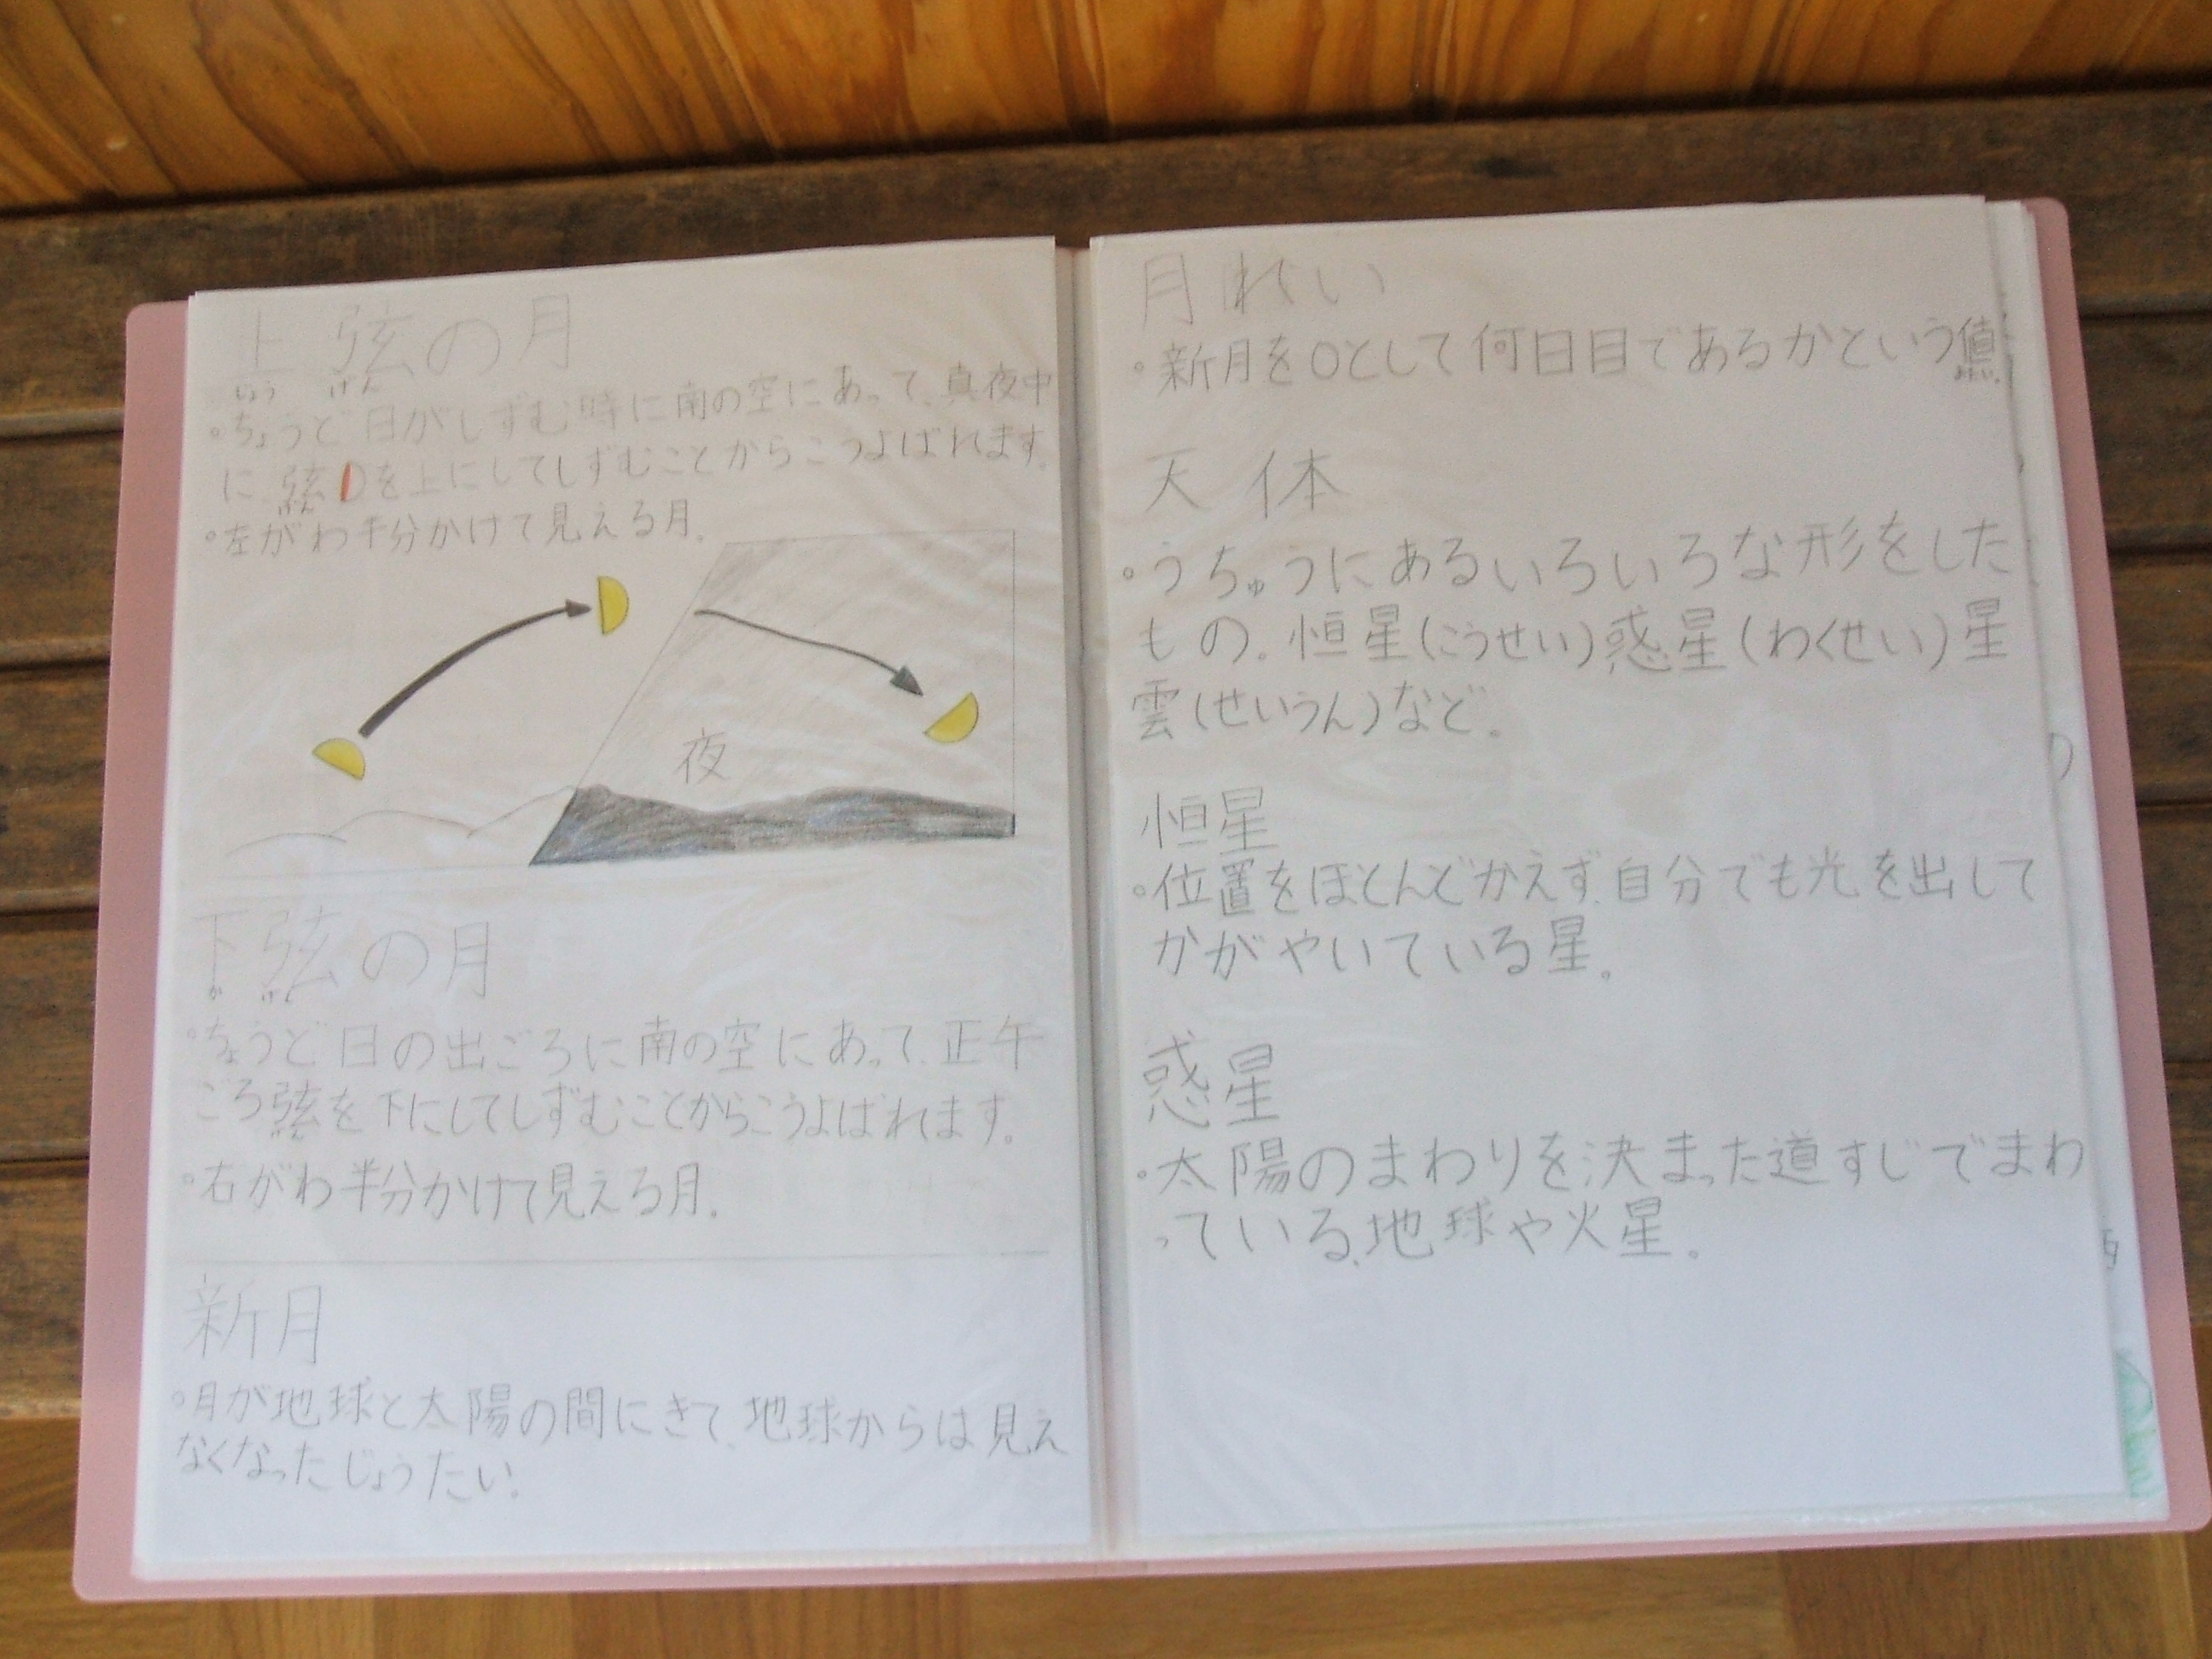 上弦の月
じょう げん
。ちょうど日がしずむ時に南の空にあって、真夜中
に、弦Dを上にしてしずむことからこうよばれます。
げん
。左がわ半分かけて見える月。
夜
下弦の月
か げん
。ちょうど日の出ごろに南の空にあって、正午
ごろ弦を下にしてしずむことからこうよばれます。
げん
。右がわ半分かけて見える月。
新月
。月が地球と太陽の間にきて、地球からは見え
なくなったじょうたい。
月れい
。新月を0として何日目であるかという値
あたい
天体
。うちゅうにあるいろいろな形をした
もの。恒星(こうせい)惑星(わくせい)星
雲(せいうん)など。
恒星
。位置をほとんどかえず、自分でも光を出して
かがやいている星。
惑星
。太陽のまわりを決まった道すじでまわ
っている、地球や火星。